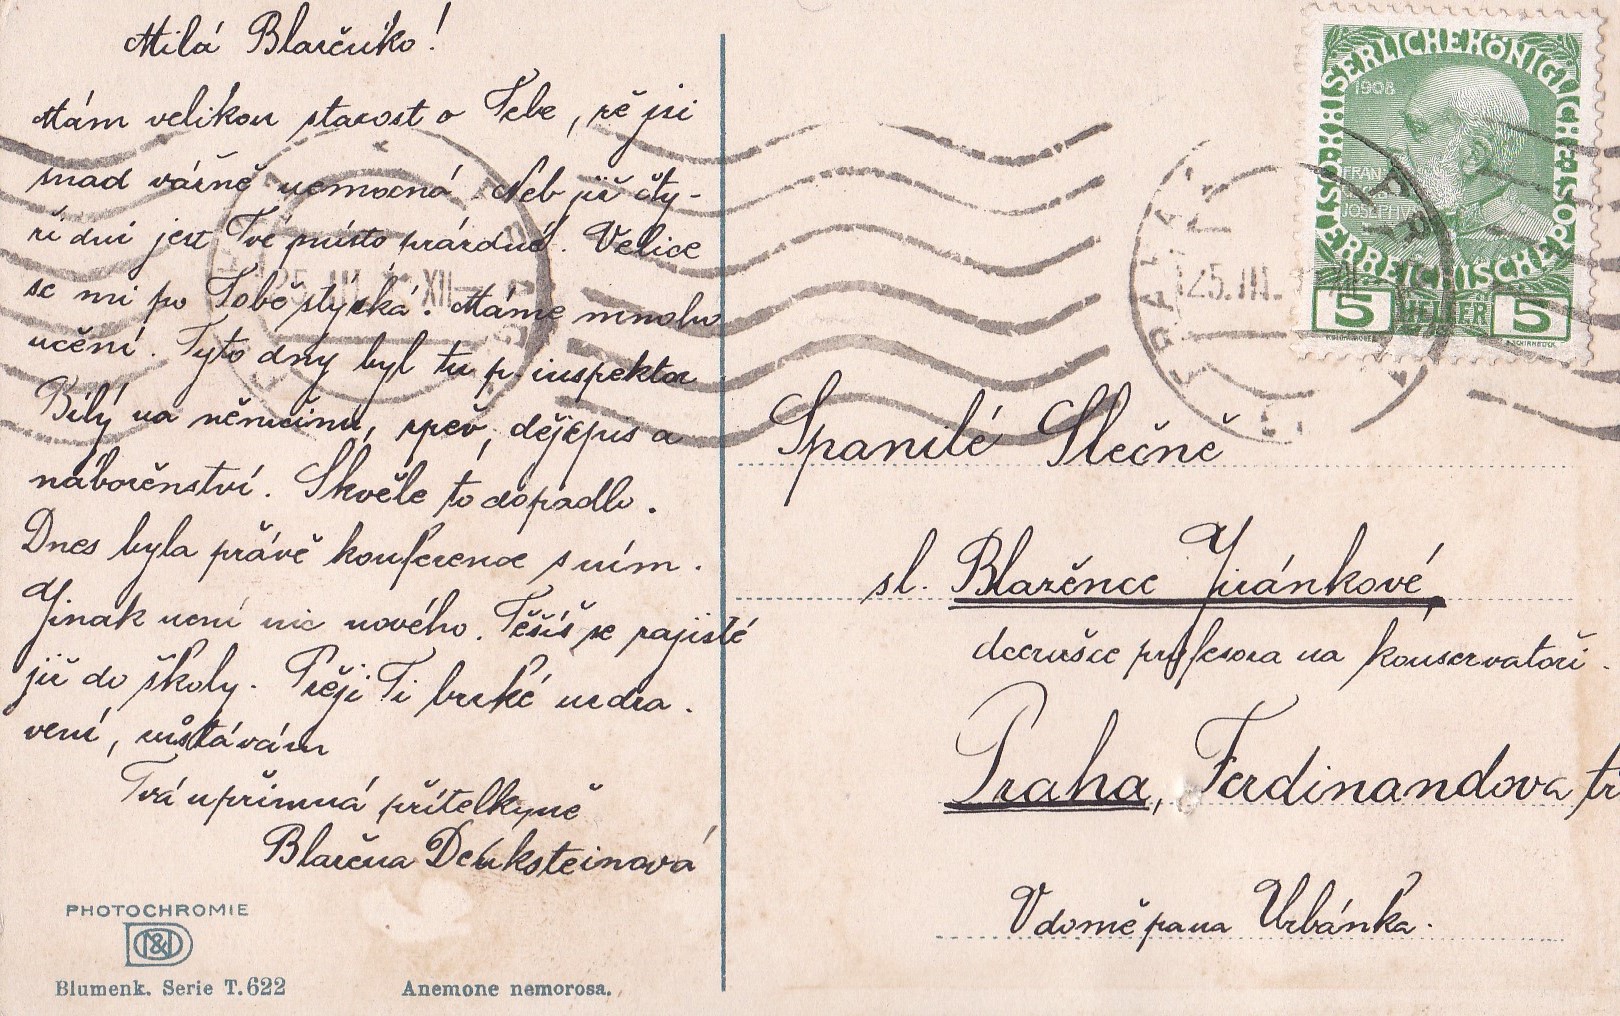 Milá Blaženko!
Mám velikou starost o Tebe, že jsi
snad vážně nemocná. Neb již čty-
ři dni jest Tvé místo prázdné. Velice
se mi po Tobě stýská. Máme mnoho
učení. Tyto dny byl tu p. inspektor
Bílý na němčinu, zpěv, dějepis a
náboženství. Skvěle to dopadlo.
Dnes byla právě konference s ním.
Jinak není nic nového. Těšíš se zajisté
již do školy. Přeji Ti brzké uzdra-
vení, zůstávám
Tvá upřímná přítelkyně
Blažena Denksteinová
PHOTOCHROMIE
Blumenk. Serie T.622
Anemone nemorosa.
KAISERLICHE KÖNIGLICHE ÖSTERREICHISCHE POST
1908
FRANZ
JOSEPH
5 HELLER 5
25.III.
Spanilé Slečně
sl. Blažence Jiránkové,
dcerušce profesora na konservatoři.
Praha, Ferdinandova tř
V domě pana Urbánka.